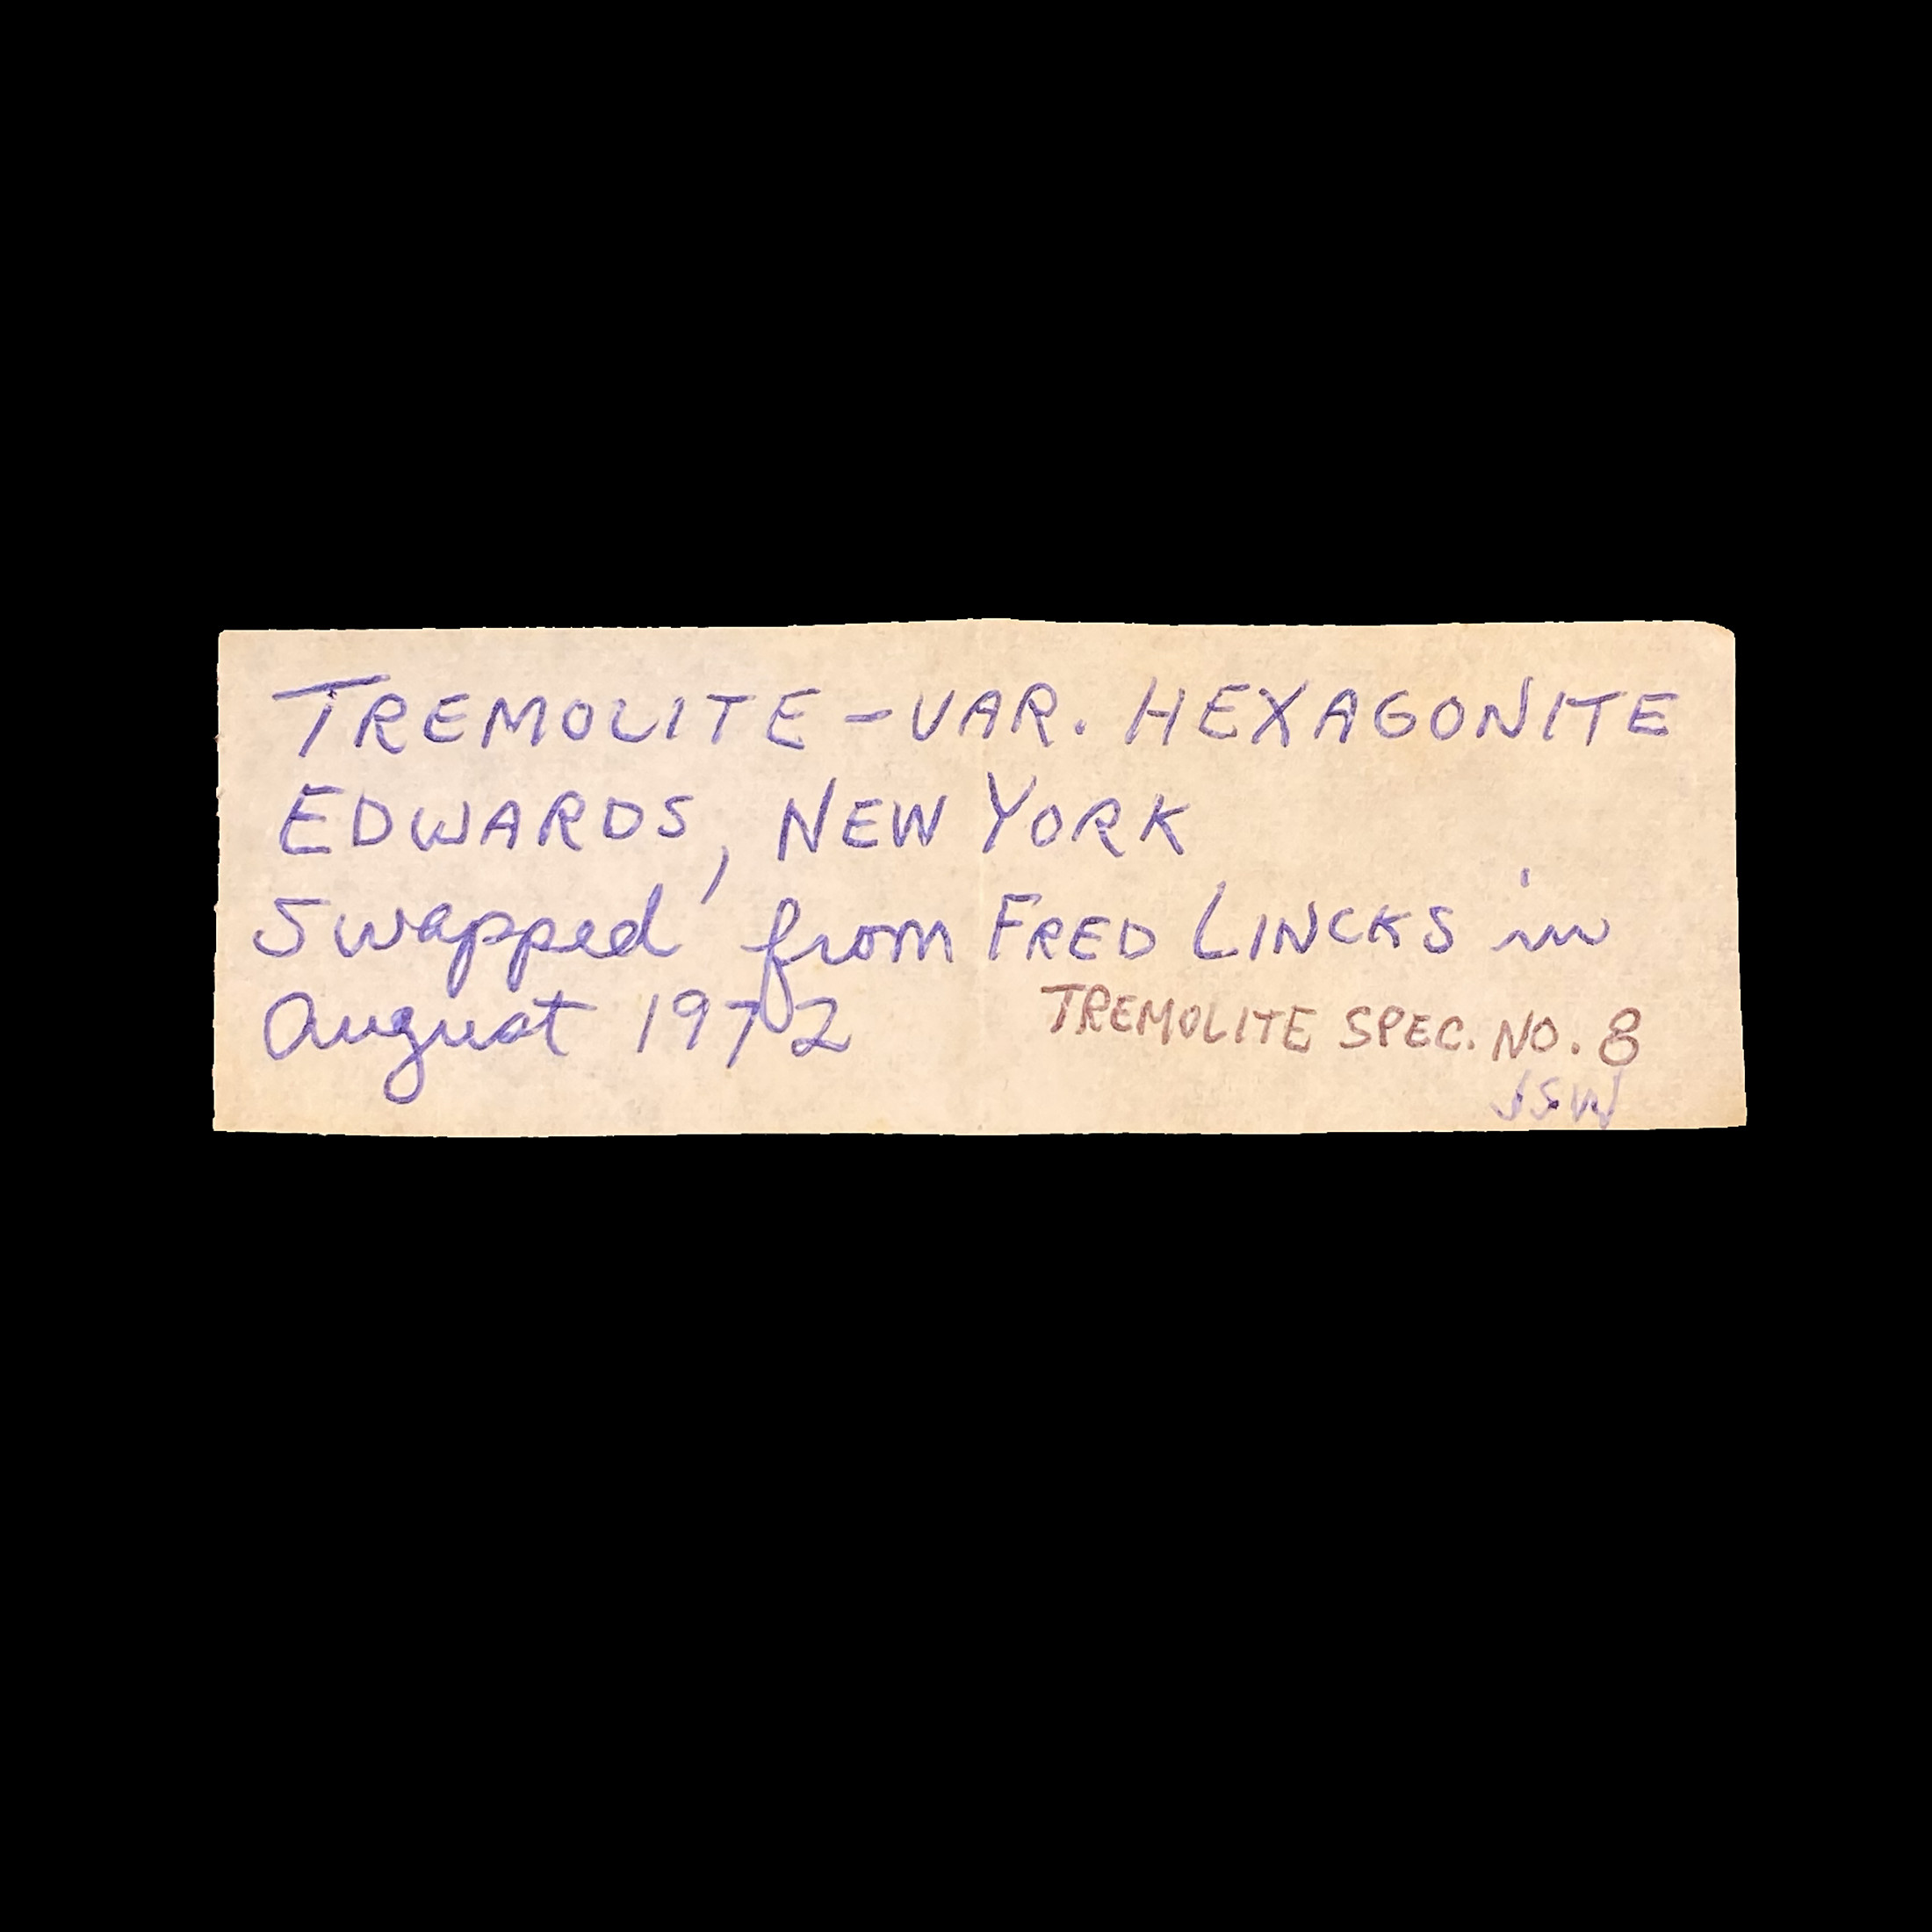 TREMOLITE - VAR. HEXAGONITE
EDWARDS, NEW YORK
Swapped from FRED LINCKS in
August 1972
TREMOLITE SPEC. NO. 8
JSW